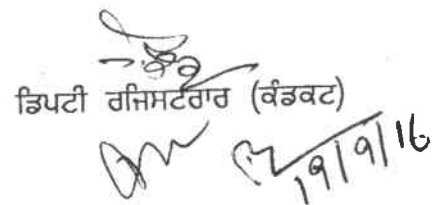 ਡਿਪਟੀ ਰਜਿਸਟਰਾਰ (ਕੰਡਕਟ)
19/9/16